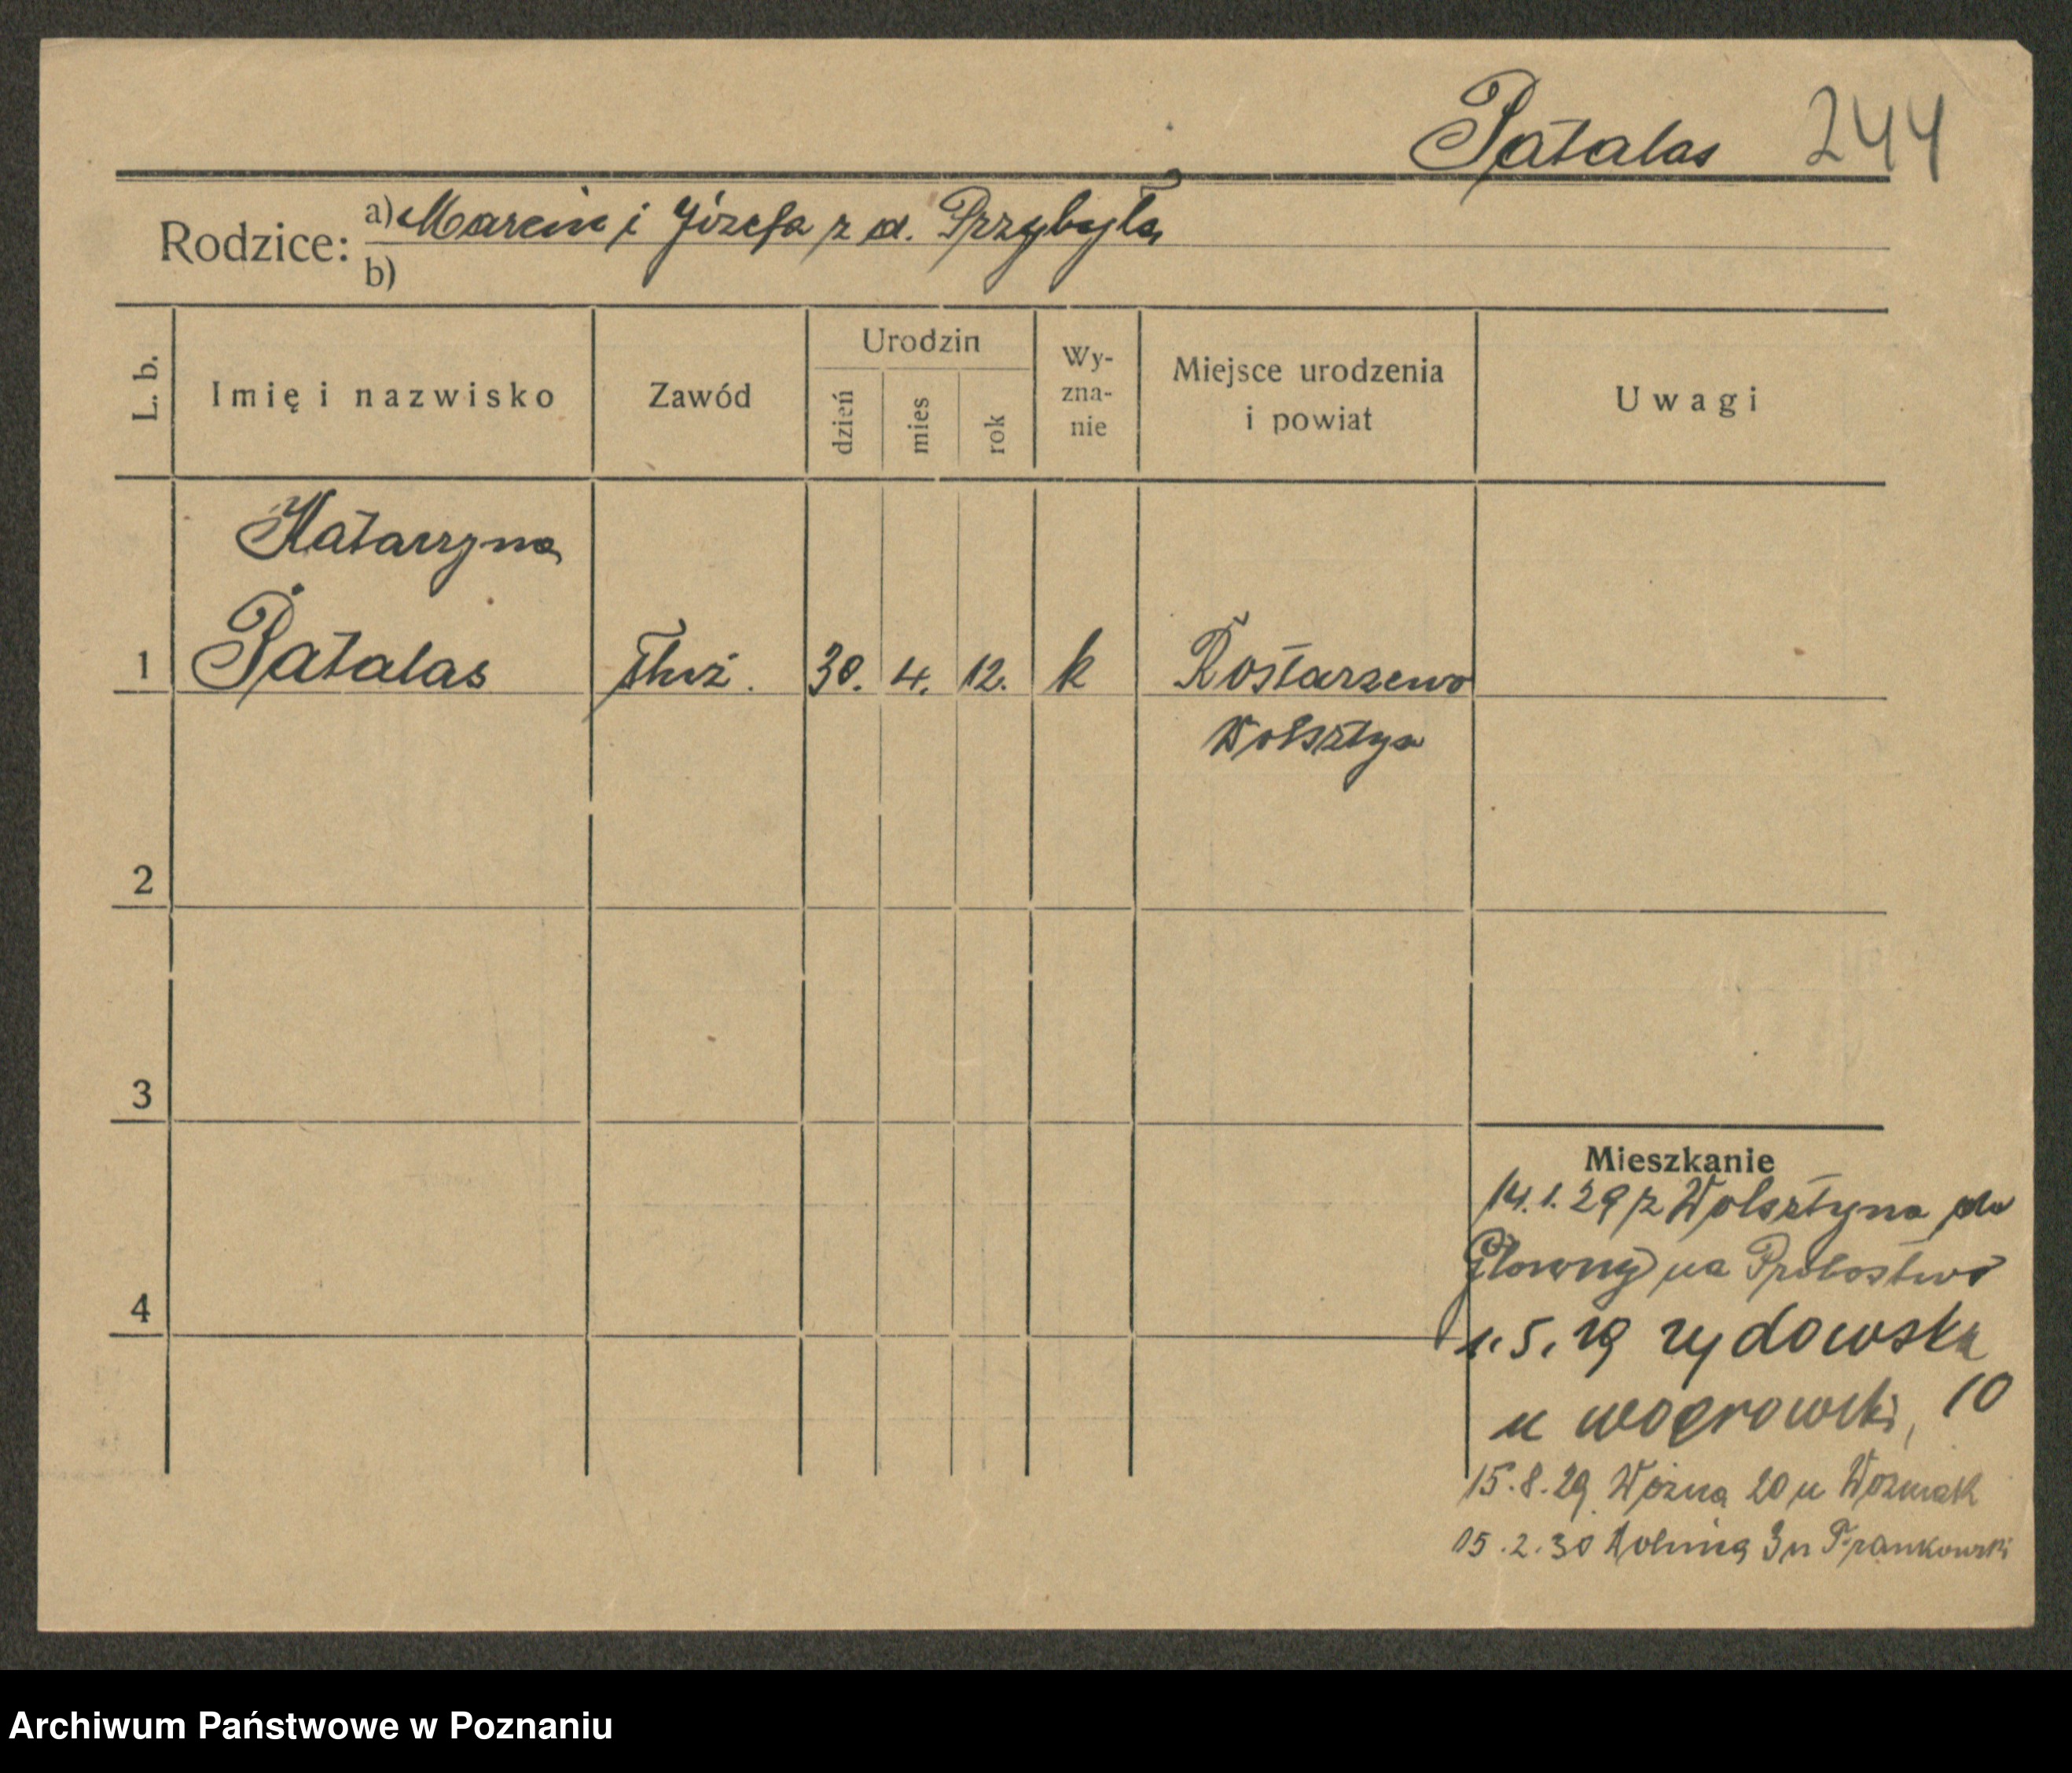 Patalas 244
Rodzice: a) Marcin i Józefa z d. Przybyła
b)
L. b. Imię i nazwisko Zawód Urodzin dzień mies rok Wy-zna-nie Miejsce urodzenia i powiat Uwagi
Katarzyna
1 Patalas służ. 30. 4. 12. k Rostarzewo
Wolsztyn
2
3
Mieszkanie
14.1.29 z Wolsztyna do
Główny na Probostwo
4
1.5.29 żydowska
u 10
15.8.29 Woźna 20 u Woźniak
15.2.30 3 u Frankowski
Archiwum Państwowe w Poznaniu